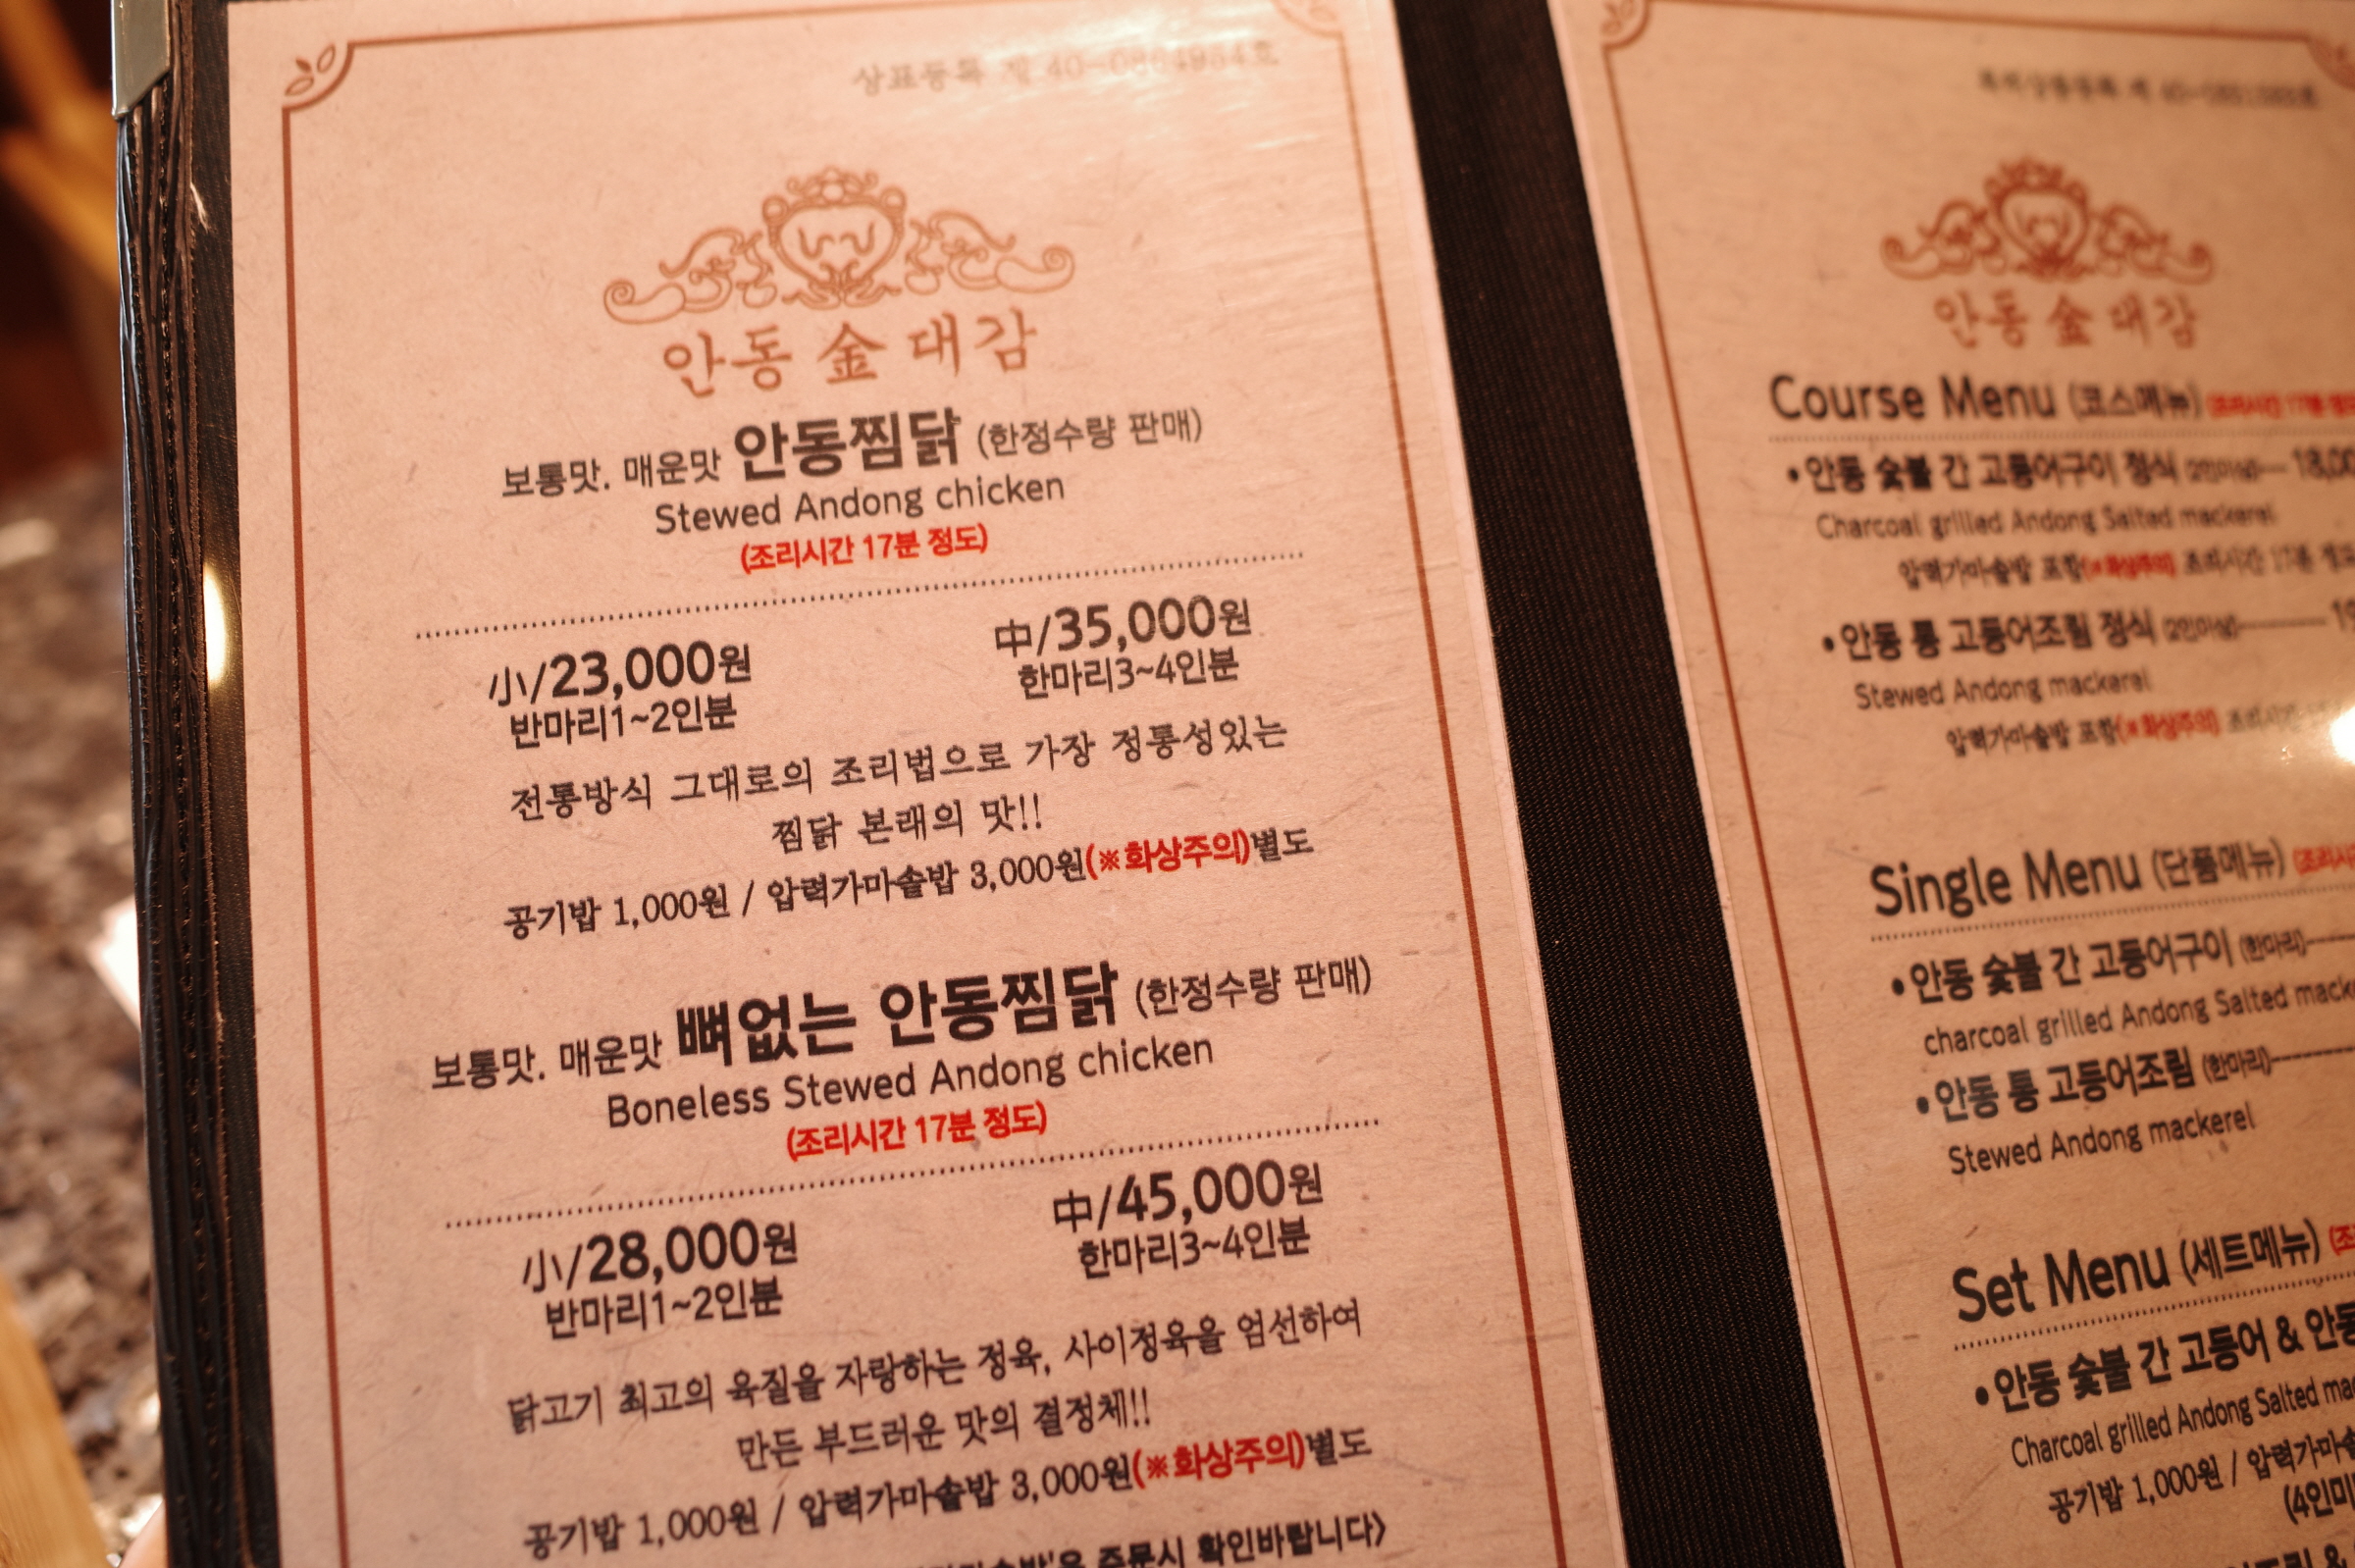 상표등록 제 40-0864954호
안동 金 대감
보통맛. 매운맛 안동찜닭 (한정수량 판매)
Stewed Andong chicken
(조리시간 17분 정도)
小/23,000원
반마리1~2인분
中/35,000원
한마리3~4인분
전통방식 그대로의 조리법으로 가장 정통성있는
찜닭 본래의 맛!!
공기밥 1,000원 / 압력가마솥밥 3,000원(※화상주의)별도
보통맛. 매운맛 뼈없는 안동찜닭 (한정수량 판매)
Boneless Stewed Andong chicken
(조리시간 17분 정도)
小/28,000원
반마리1~2인분
中/45,000원
한마리3~4인분
닭고기 최고의 육질을 자랑하는 정육, 사이정육을 엄선하여
만든 부드러운 맛의 결정체!!
공기밥 1,000원 / 압력가마솥밥 3,000원(※화상주의)별도
주문시 확인바랍니다>
안동 金 대감
Course Menu (코스메뉴) (조리시간 17분 정도
•안동 숯불 간 고등어구이 정식 (2인이상) 18,00
Charcoal grilled Andong Salted mackerel
압력가마솥밥 포함(※화상주의) 조리시간 17분 정도
•안동 통 고등어조림 정식 (2인이상) 19
Stewed Andong mackerel
압력가마솥밥 포함(※화상주의) 조리시간
Single Menu (단품메뉴) (조리시간
•안동 숯불 간 고등어구이 (한마리)
charcoal grilled Andong Salted macke
•안동 통 고등어조림 (한마리)
Stewed Andong mackerel
Set Menu (세트메뉴) (조
•안동 숯불 간 고등어 & 안동
Charcoal grilled Andong Salted ma
공기밥 1,000원 / 압력가마솥
(4인미